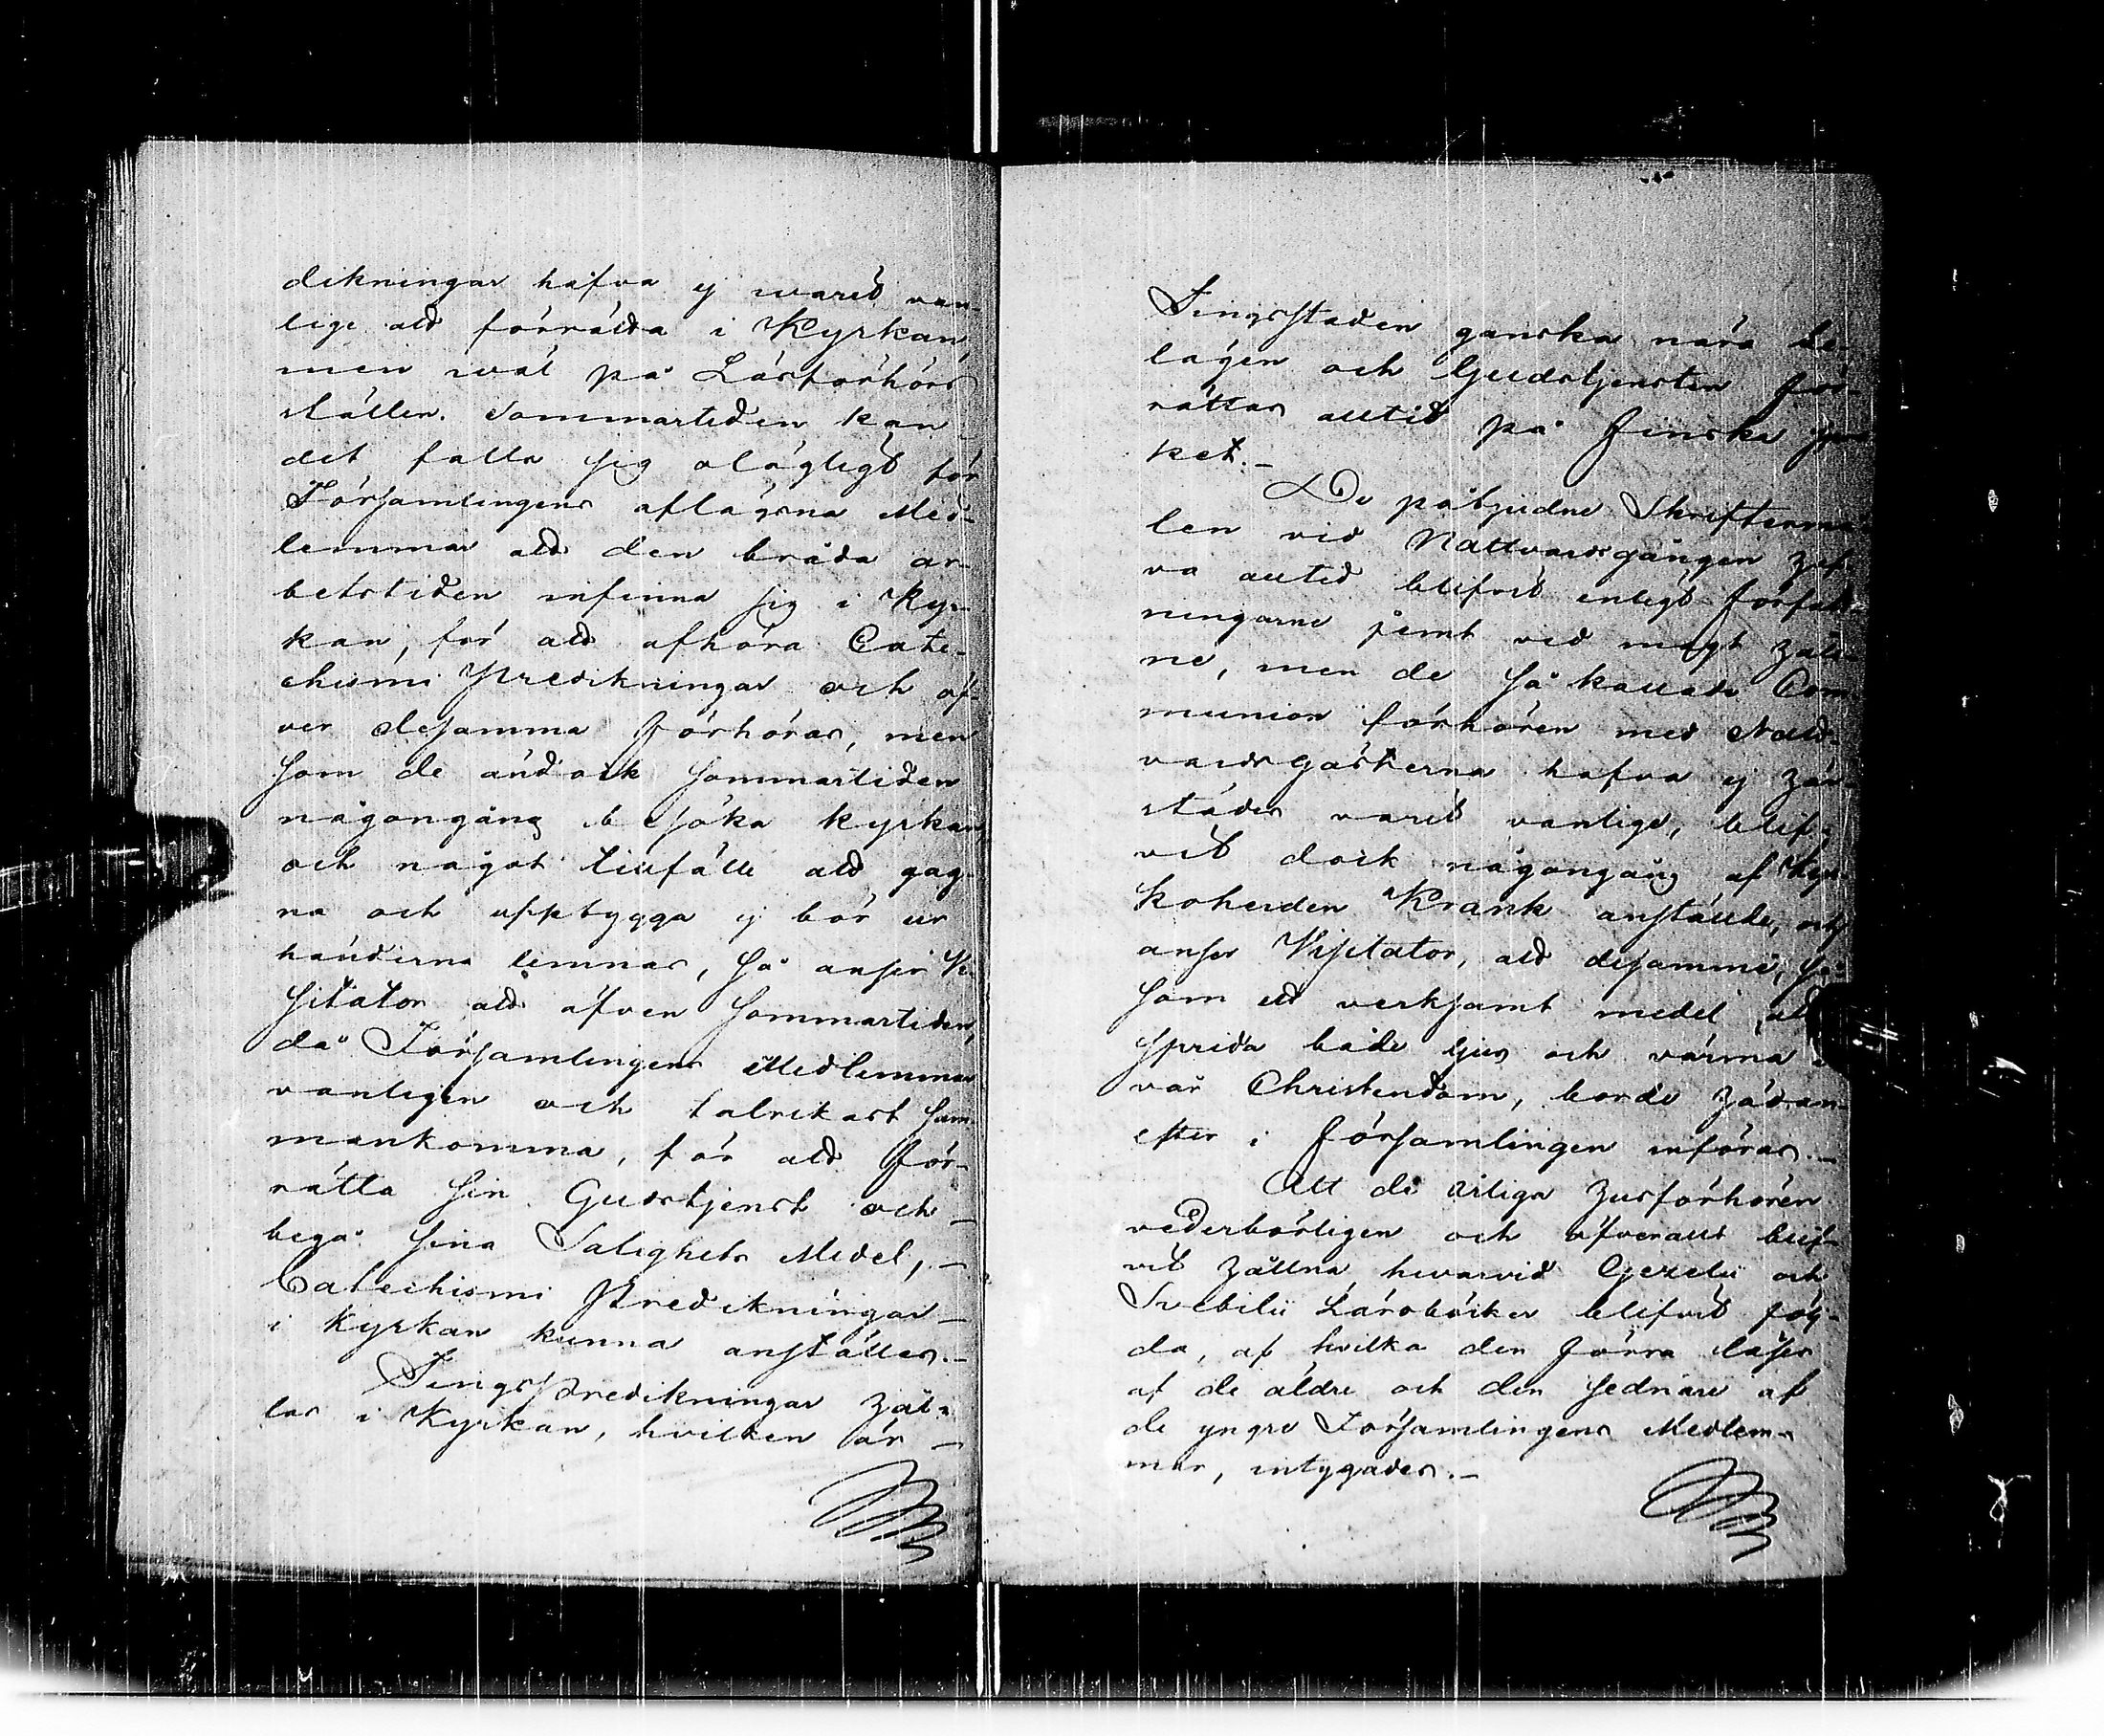 dikningar hafva ej warit van-
lige att förrätta i Kyrkan,
men wäl på Läsförhörs
ställen. Sommartiden kan
det falla sig olägligt för
Församlingens aflägsna Med-
lemmar att den bråda ar-
betstiden infinna sig i Kyr-
kan, för att afhöra Cate-
chismi Predikningar och öf-
ver desamma förhöras, men
som de ändock sommartiden
någongång besöka kyrkan,
och något tillfälle att gag-
na och uppbygga ej bör ur
händerna lemnas, så anser Vi-
sitator att äfven sommartiden,
då Församlingens Medlemmar
vanligen och talrikast sam-
mankomma, för att för-
rätta sin Gudstjenst och
begå sina Salighets Medel,
Catechismi Predikningar
i Kyrkan kunna anställas.
Tingspredikningar hål-
las i Kyrkan, hvilken är
Tingsstaden ganska nära be-
lägen och Gudstjensten för-
rättas alltid på finska språ-
ket.
De påbjudne Skriftermå-
len vid Nattvardsgången haf-
va alltid blifvit enligt författ-
ningarne jemt vid magt håll-
ne, men de så kallade Com-
munion förhören med Natt-
vards gästerna hafva ej här-
städes varit vanlige, blif-
vit dock någongång af Kyr-
koherden Krank anställde, och
anser Visitator, att desamme, så-
som ett verksamt medel att
sprida både ljus och värma i
vår Christendom, borde hädan-
efter i församlingen införas.
Att de årliga husförhören
vederbörligen och öfverallt blif-
vit hållna, hvarvid Gezelii och
Svebilii Läroböcker blifvit fög-
da, af hvilka den förra läses
af de äldre och den sednare af
de yngre Församlingens Medlem-
mar, intygades.